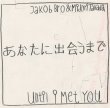 Jakob Bro & Midori Takada
あなたに出会うまで
Until I Met You